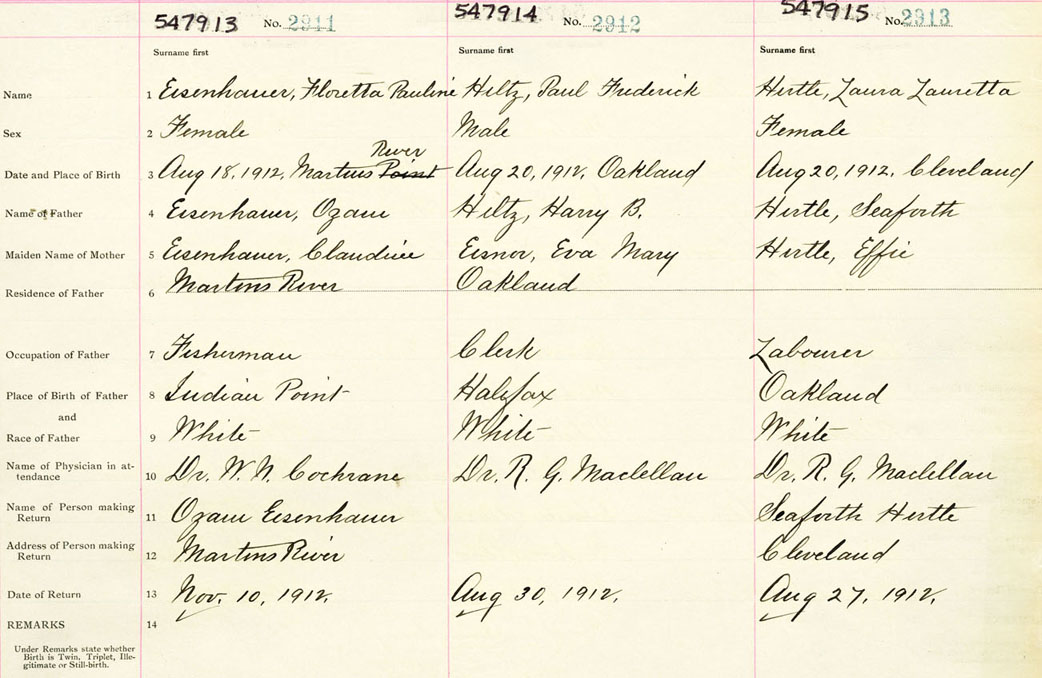 547913 No. 2911 547914 No. 2912 547915 No. 2913
Surname first Surname first Surname first
Name 1 Eisenhauer, Floretta Pauline Hiltz, Paul Frederick Hirtle, Laura Lauretta
Sex 2 Female Male Female
River
Date and Place of Birth 3 Aug 18, 1912, Martins Point Aug 20, 1912, Oakland Aug 20, 1912. Cleveland
Name of Father 4 Eisenhauer, Ozam Hiltz, Harry B. Hirtle, Seaforth
Maiden Name of Mother 5 Eisenhauer, Claudine Eisnor, Eva Mary Hirtle, Effie
Residence of Father 6 Martins River Oakland
Occupation of Father 7 Fisherman Clerk Labourer
Place of Birth of Father 8 Indian Point Halifax Oakland
and
Race of Father 9 White White White
Name of Physician in at-
tendance 10 Dr. W. N. Cochrane Dr. R. G. Maclellan Dr. R. G. Maclellan
Name of Person making
Return 11 Ozam Eisenhauer Seaforth Hirtle
Address of Person making
Return 12 Martins River Cleveland
Date of Return 13 Nov. 10, 1912. Aug 30, 1912. Aug 27, 1912.
REMARKS 14
Under Remarks state whether
Birth is Twin, Triplet, Ille-
gitimate or Still-birth.